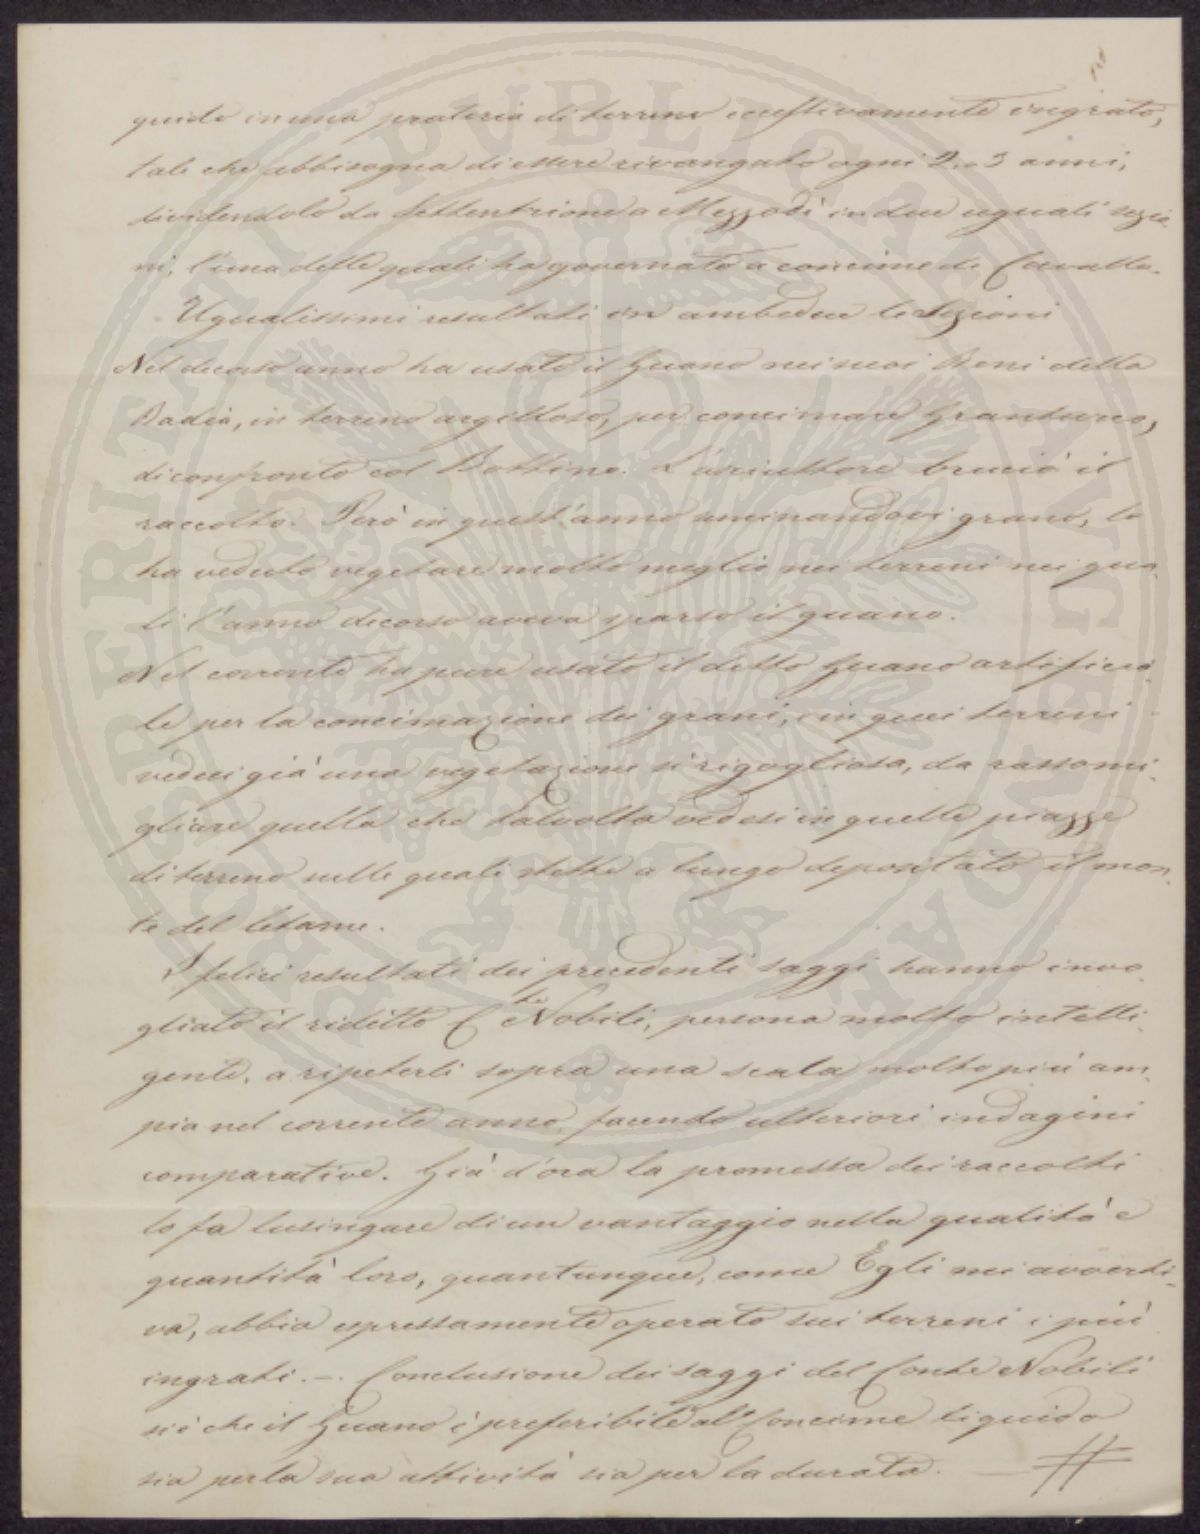 quido in una prateria di terreno eccessivamente ingrato,
tale che abbisogna di essere rivangato ogni 2. o 3 anni,
dividendolo da Settentrione a Mezzodì in due uguali sezio-
ni, l'una delle quali ha governato a concime di Cavallo.
Ugualissimi resultati in ambedue le sezioni
Nel decorso anno ha usato il Guano nei suoi Beni della
Badia, in terreno argilloso, per concimare Granturco,
di confronto col Bottino. L'aricultore bruciò il
raccolto. Però in quest'anno seminandovi grano, lo
ha veduto vegetare molto meglio nei terreni nei qua-
li l'anno decorso aveva sparso il guano.
Nel corrente ha pure usato il detto Guano artificia-
le per la concimazione dei grani, in quei terreni
vedesi già una vegetazione sì rigogliosa, da rassomi-
gliare quella che talvolta vedesi in quelle piazze
di terreno nelle quali stette a lungo depositato il mon-
te del letame.
I felici resultati dei precedenti saggi hanno invo-
gliato il ridetto C.te Nobili, persona molto intelli-
gente, a ripeterli sopra una scala molto più am-
pia nel corrente anno, facendo ulteriori indagini
comparative. Già d'ora la promessa dei raccolti
lo fa lusingare di un vantaggio nella qualità e
quantità loro, quantunque, come Egli mi avverti-
va, abbia espressamente operato sui terreni i più
ingrati. —. Conclusione dei saggi del Conte Nobili
si è che il Guano è preferibile al Concime liquido
sia per la sua attività sia per la durata. #
PROSPERITATI PUBLICAE AUGENDAE